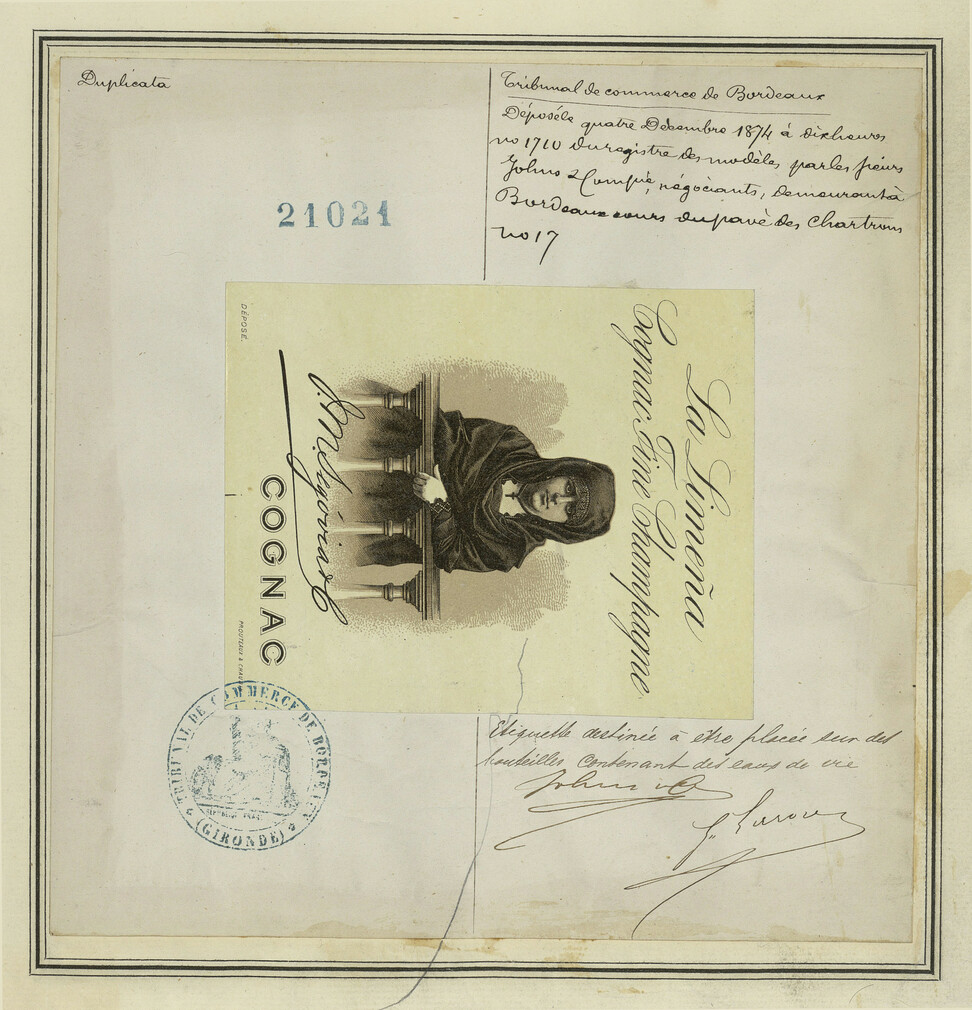 Duplicata
Tribunal de commerce de Bordeaux
Déposé le quatre Décembre 1874 à dix heures
no 1710 du registre des modèles par les sieurs
Johns & Compie, négociants, demeurant à
Bordeaux cours du pavé des Chartrons
no 17
21021
La Limeña
Cognac Fine Champagne
COGNAC
DÉPOSÉ.
PROUTEAUX &
TRIBUNAL DE COMMERCE DE BORDEAUX
(GIRONDE)
Etiquette destinée à être placée sur des
bouteilles contenant des eaux de vie
Johns & Co